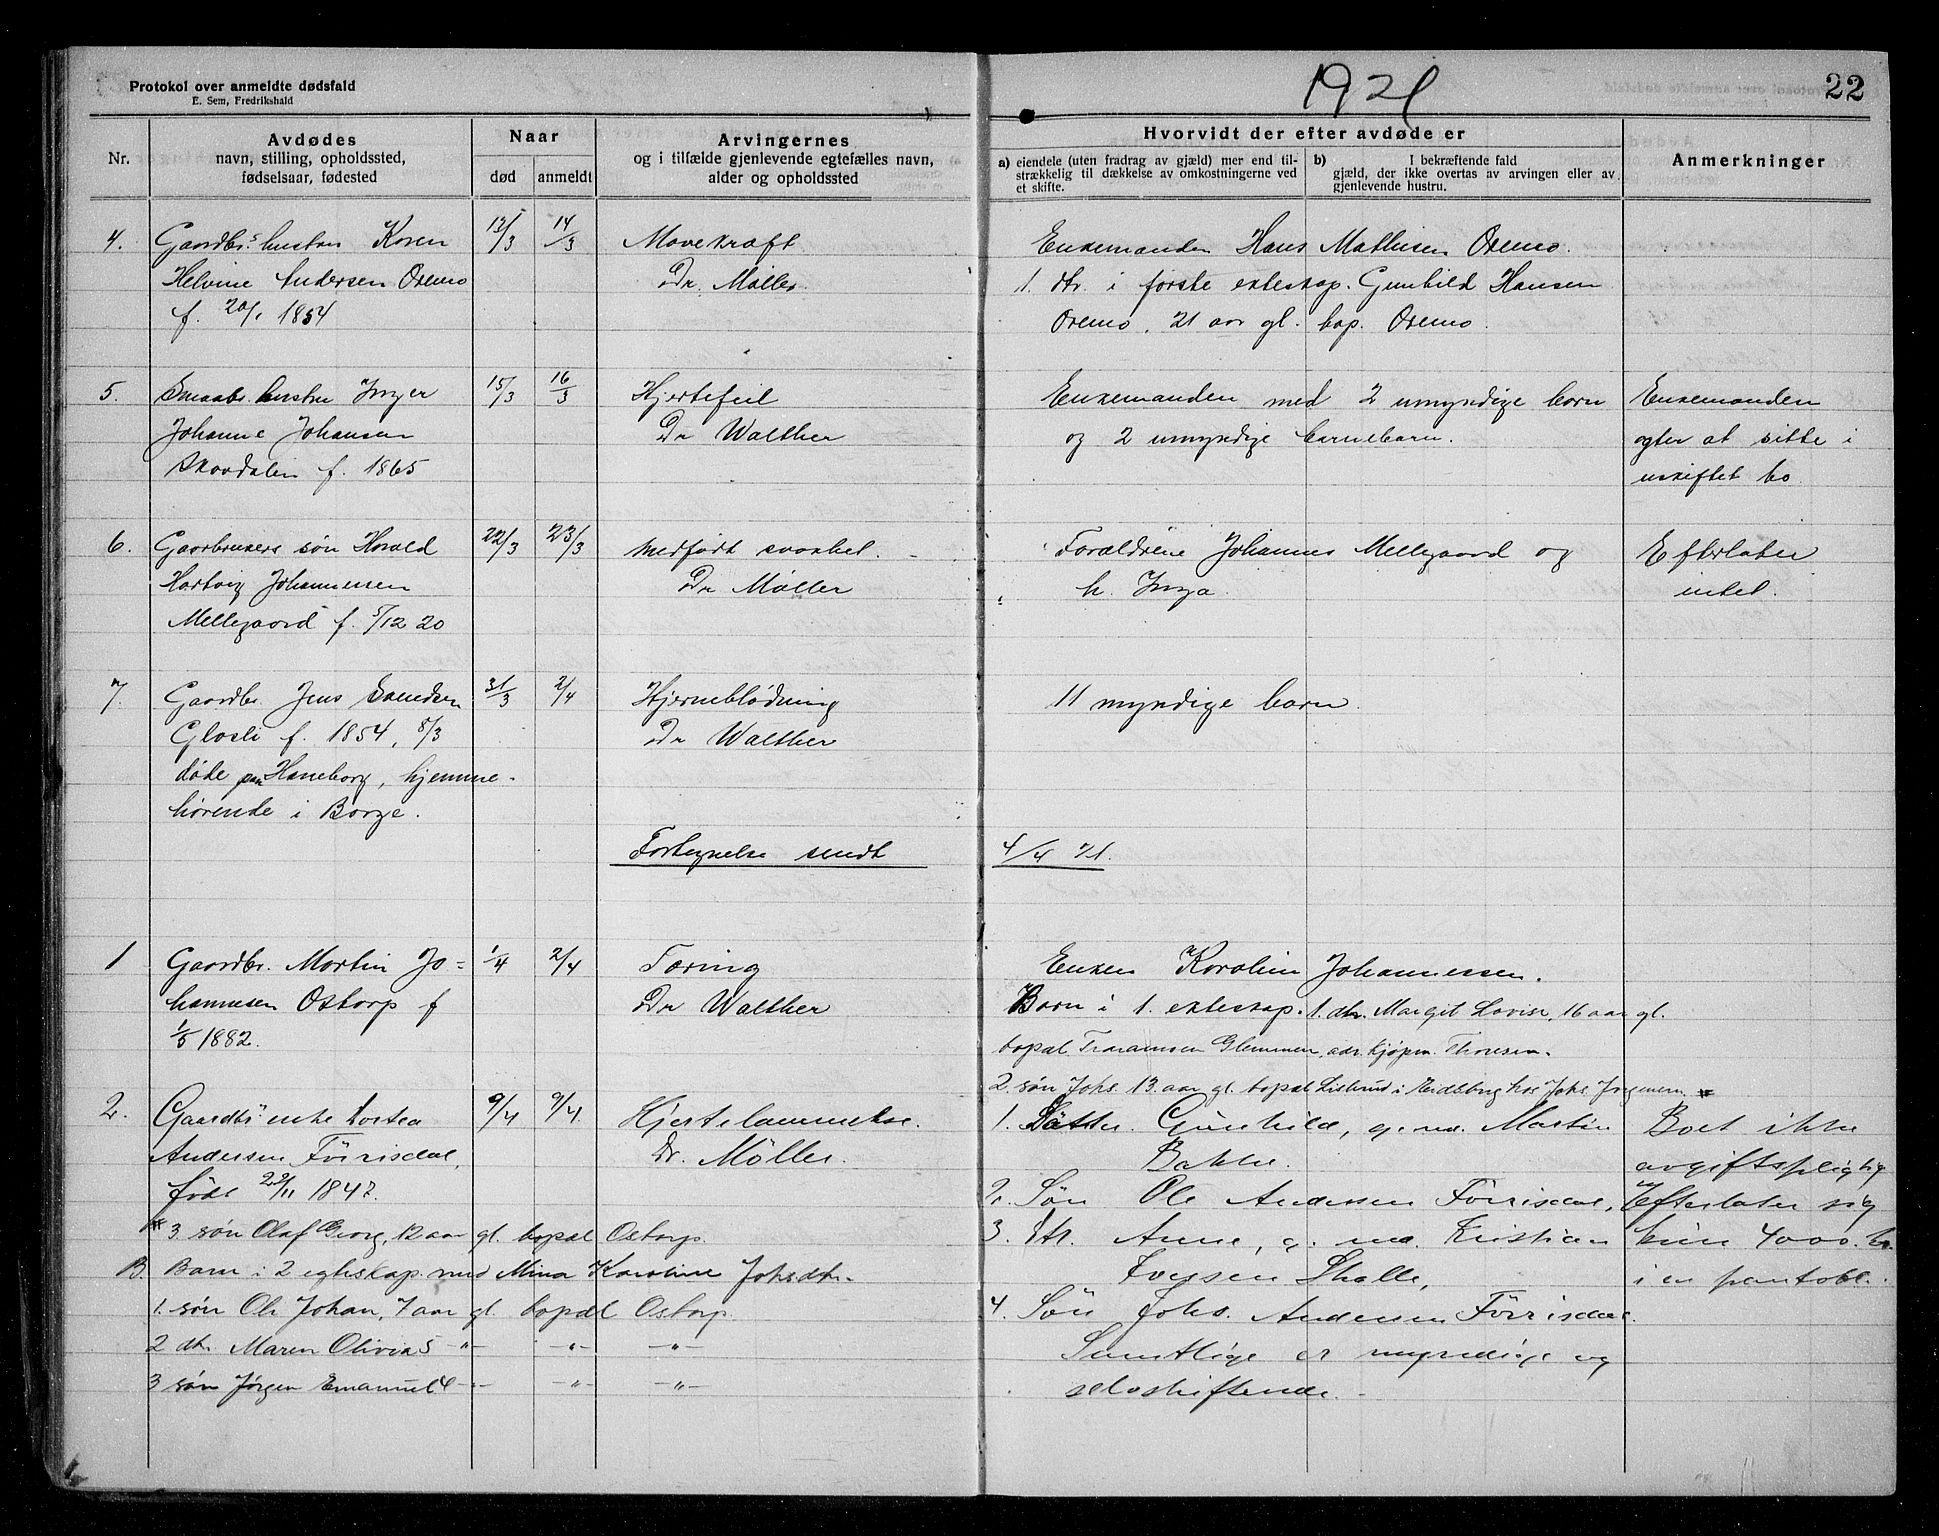 Protokol over anmeldte dødsfald
E. Sem, Fredrikshald
1921
22
Nr.
Avdødes
navn, stilling, opholdssted,
fødselsaar, fødested
Naar
død
anmeldt
Arvingernes
og i tilfælde gjenlevende egtefælles navn,
alder og opholdssted
Hvorvidt der efter avdøde er
a) eiendele (uten fradrag av gjæld) mer end til-
strækkelig til dækkelse av omkostningerne ved
et skifte.
b) I bekræftende fald
gjæld, der ikke overtas av arvingen eller av
gjenlevende hustru.
Anmerkninger
4. Gaardbr.s hustru Karen 12/3 14/3 Mavekræft Enkemanden Hans Mathisen Oremo.
Helvine Andersen Oremo Dr. Møller 1. dtr. i første ekteskap. Gunhild Hansen
f. 20/1 1854 Oremo, 21 aar gl. bop. Oremo.
5. Smaabr. hustru Inger 15/3 16/3 Hjertefeil Enkemanden med 2 umyndige barn Enkemanden
Johanne Johansen Dr Walther og 2 umyndige barnebarn. agter at sitte i
Skovdalen f. 1865 uskiftet bo
6. Gaarbrukers søn Harald 22/3 23/3 Medfødt svakhet. Forældrene Johannes Mellegaard og Efterlater
Hartvig Johannessen Dr Møller h. Inga. intet.
Mellegaard f. 5/12 20
7. Gaardbr. Jens Svendsen 31/3 2/4 Hjerneblødning 11 myndige barn.
Glosli f. 1854, 8/3 Dr Walther
døde paa Haneborg, hjemme-
hørende i Borge.
Fortegnelse sendt 4/4 21.
1 Gaardbr. Martin Jo- 1/4 2/4 Tæring Enken Karoline Johannessen.
hannesen Ostorp f Dr Walther Barn i 1. ekteskap. 1. dtr. Margit Lovise, 16 aar gl.
1/5 1882. bopæl Glemmen, adr. kjøpm. Thoresen.
2. søn Johs. 13 aar gl. bopæl i hos Johs. Jørgensen *
2. Gaardbr enke Dortea 9/4 9/4. Hjertelammelse. 1. Datter Gunhild, g. m. Martin Boet ikke
Andersen Förrisdal, Dr. Møller. Bakke. avgiftspligtig
født 22/11 1847. 2. Søn Ole Andersen Förrisdal, Efterlater sig
* 3 søn Olaf Georg, 12 aar gl. bopæl Ostorp. 3. Dtr. Anne, g. m. Kristian kun 4000. kr.
B. Barn i 2 egteskap med Mina Karoline Johsdtr. Iversen i en pantobl.
1. søn Ole Johan, 7 aar gl. bopæl Ostorp. 4. Søn Johs. Andersen Förrisdal.
2 dtr. Maren Olivia 5 -"- -"- -"- Samtlige er myndige og
3 søn Jørgen Emanuel 4 -"- -"- -"- selvskiftende.